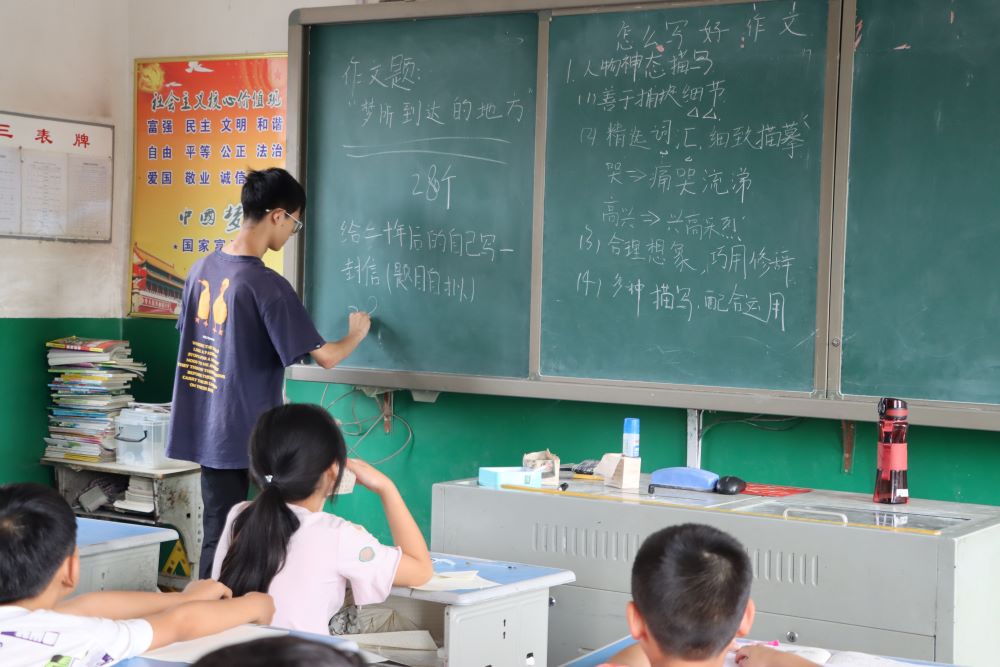 三 表 牌
社会主义核心价值观
富强 民主 文明 和谐
自由 平等 公正 法治
爱国 敬业 诚信
中国梦
★国家富
作文题:
“梦所到达的地方”
28个
给二十年后的自己写一
封信(题目自拟)
怎么写好作文
1. 人物神态描写
(1)善于捕捉细节
(2)精选词汇,细致描摹
哭⇒痛哭流涕
高兴⇒兴高采烈
(3)合理想象,巧用修辞
(4)多种描写,配合运用